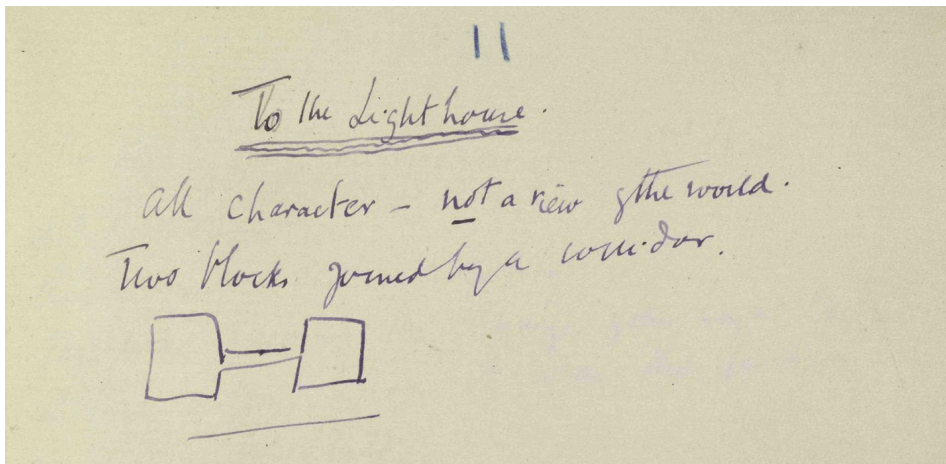 11
To the Lighthouse.
All character - not a view of the world.
Two blocks joined by a corridor.